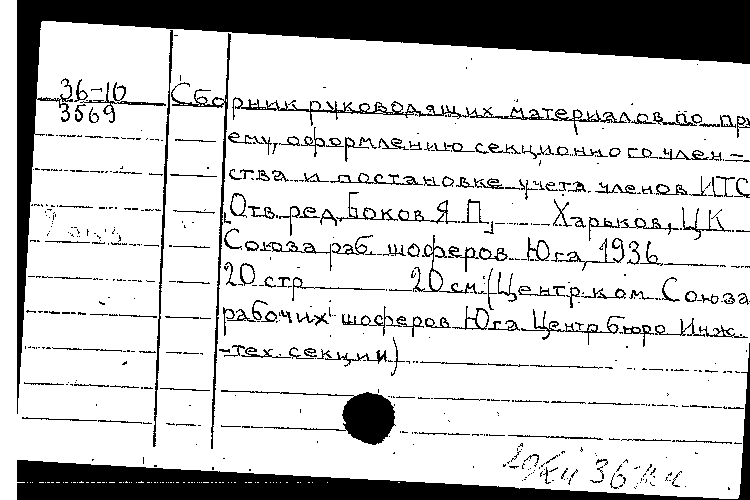 36-10
3569
Сборник руководящих материалов по при
ему, оформлению секционного член-
ства и постановке учета членов ИТС
[Отв. ред. Боков Я. П.] Харьков, ЦК
Союза раб. шоферов Юга, 1936
20 стр 20 см. (Центр. ком Союза
рабочих шоферов Юга. Центр бюро Инж.
-тех. секции)
36